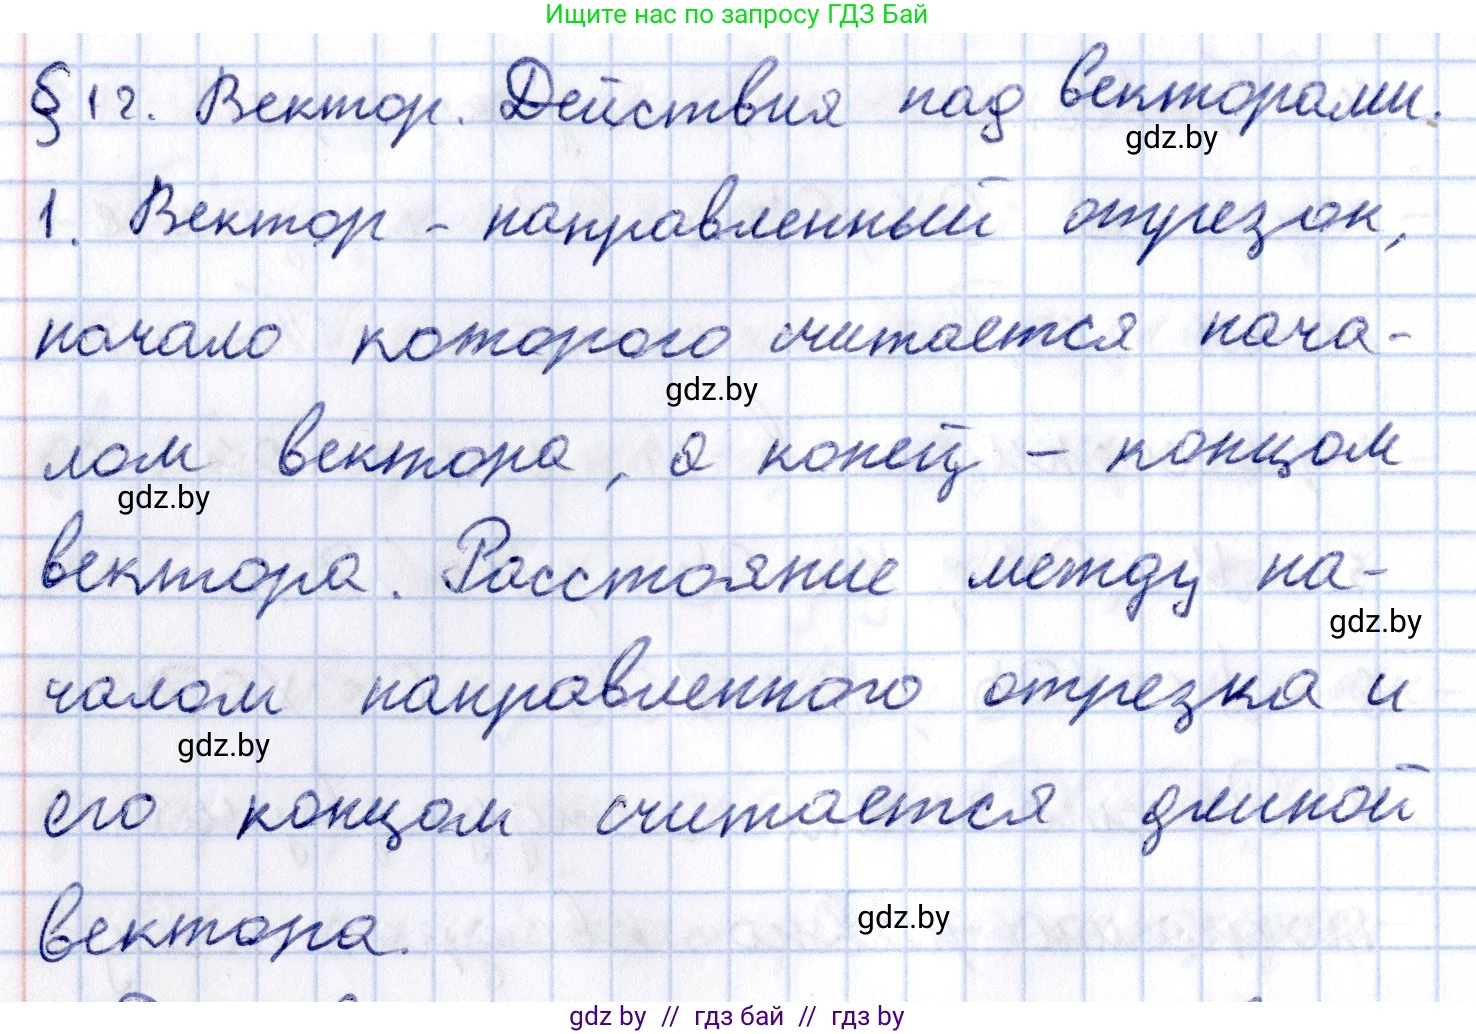 Ищите нас по запросу ГДЗ Бай
§ 12. Вектор. Действия над векторами.
gdz.by
1. Вектор - направленный отрезок,
начало которого считается нача-
gdz.by
лом вектора, а конец - концом
gdz.by
вектора. Расстояние между на-
gdz.by
чалом направленного отрезка и
gdz.by
его концом считается длиной
вектора.
gdz.by
gdz by // гдз бай // гдз by